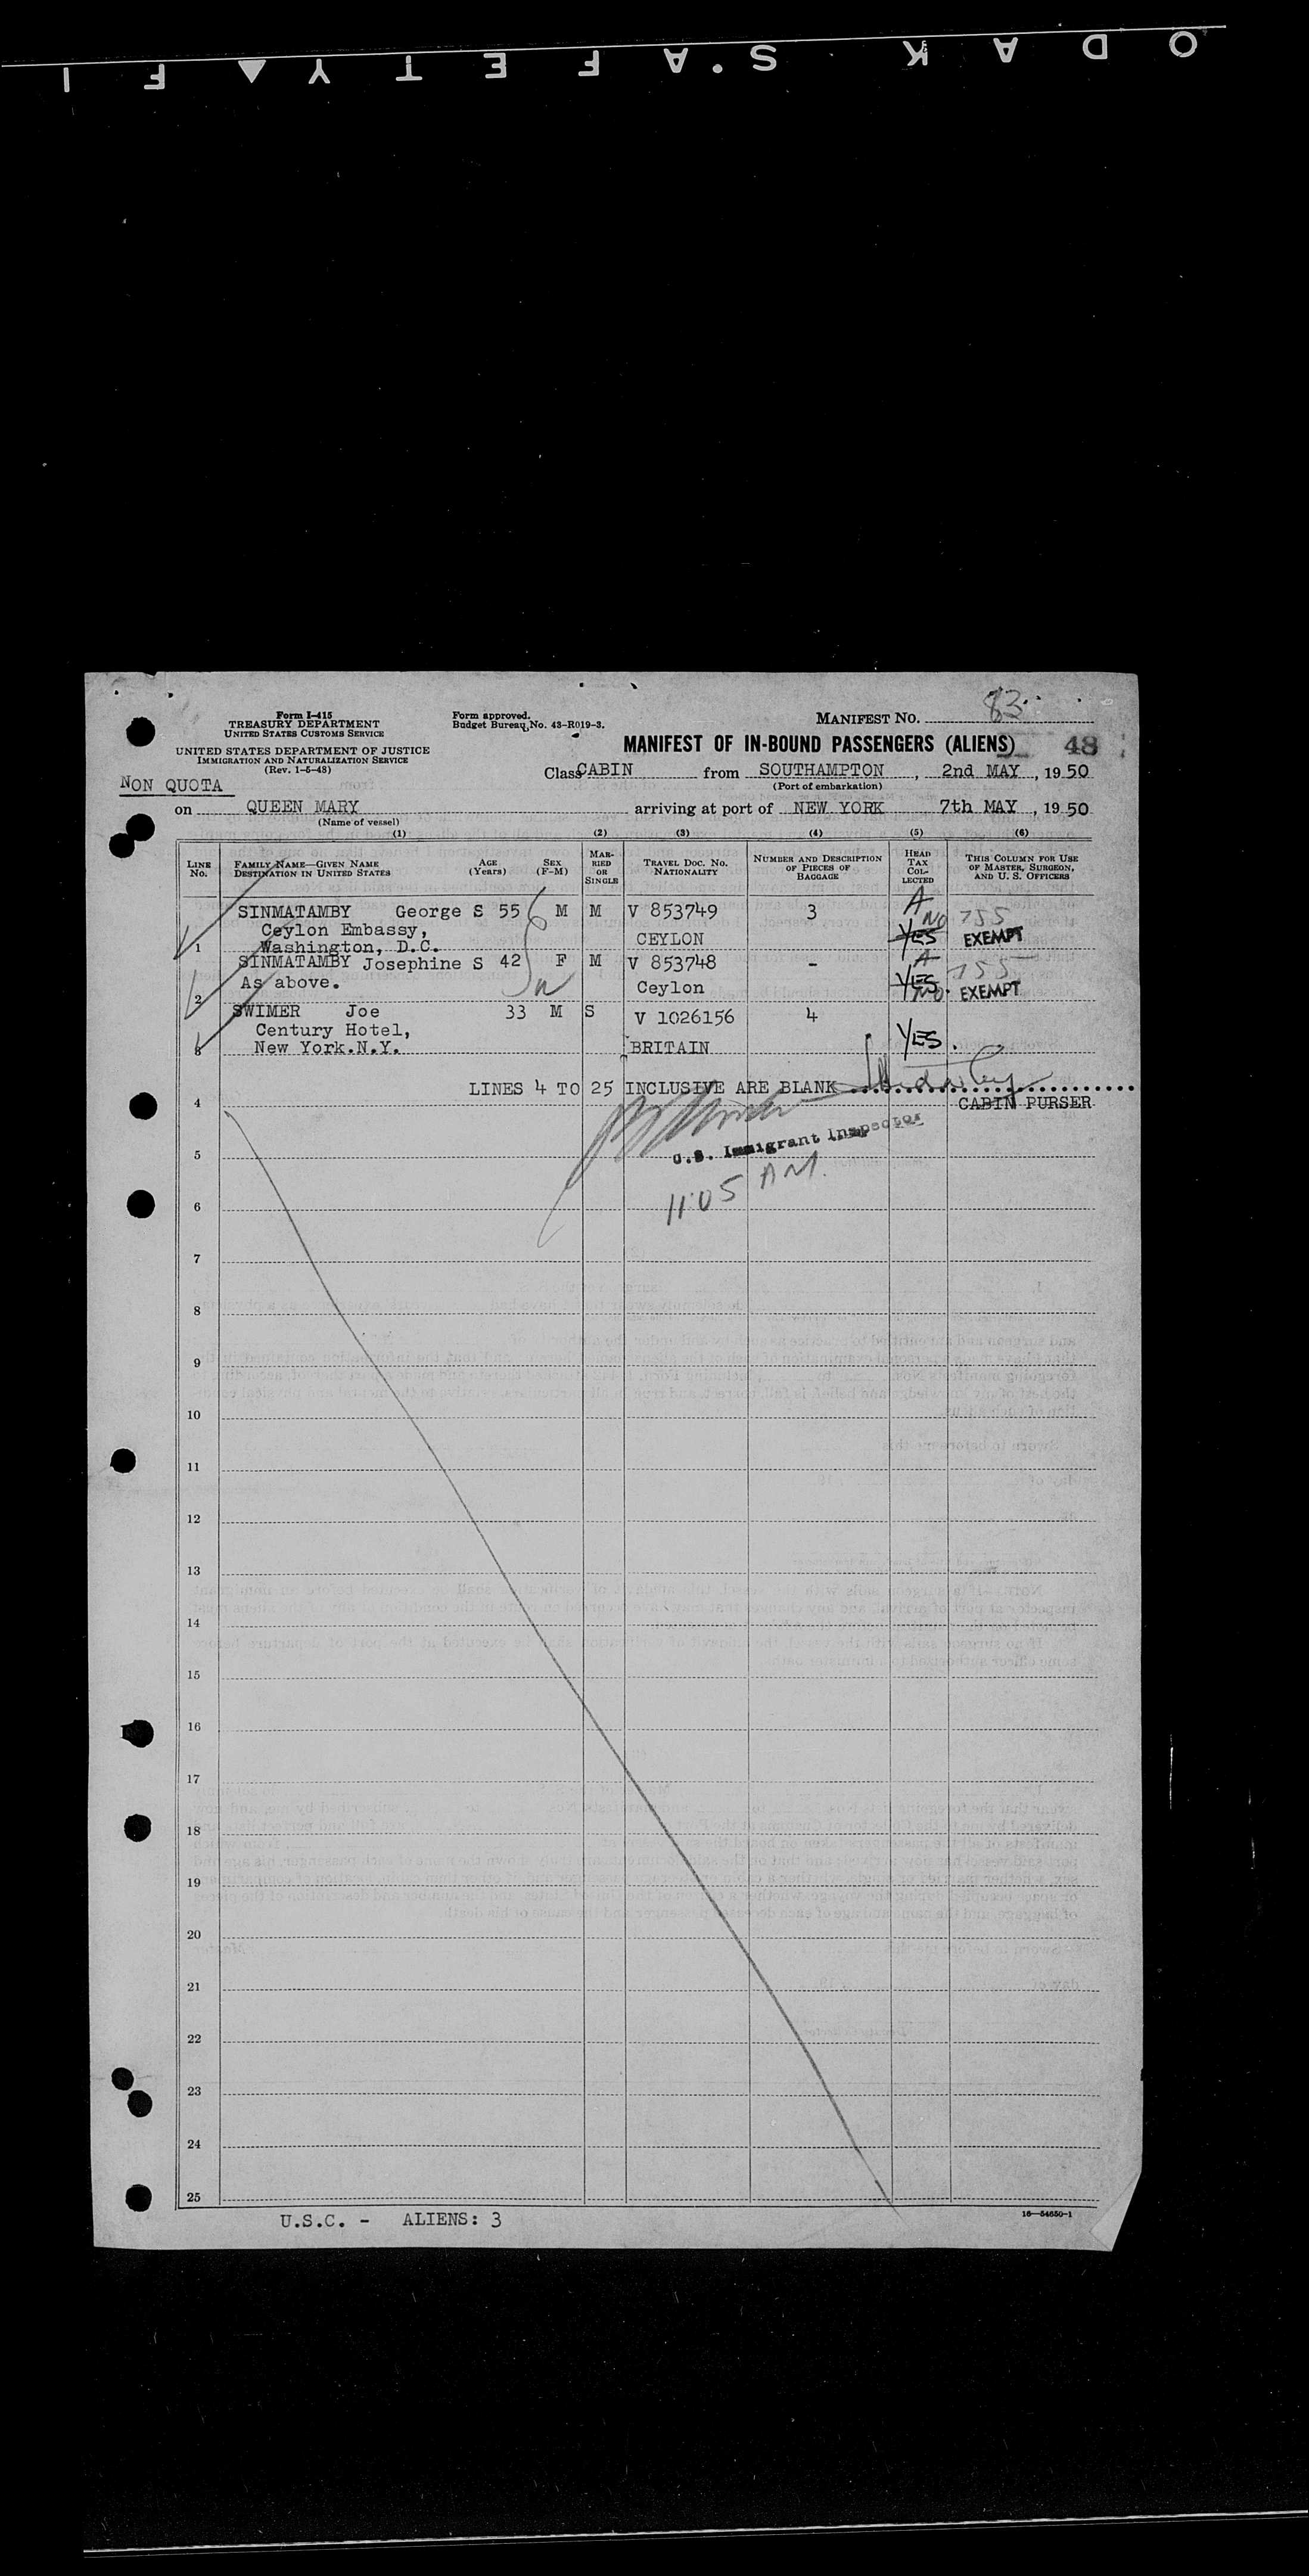 KODAK · SAFETY ▲ FI
Form I-415
TREASURY DEPARTMENT
UNITED STATES CUSTOMS SERVICE
UNITED STATES DEPARTMENT OF JUSTICE
IMMIGRATION AND NATURALIZATION SERVICE
(Rev. 1-5-48)
Form approved.
Budget Bureau No. 43-R019-3.
MANIFEST NO. 83
MANIFEST OF IN-BOUND PASSENGERS (ALIENS) 48
NON QUOTA
Class CABIN from SOUTHAMPTON, 2nd MAY, 1950
(Port of embarkation)
on QUEEN MARY arriving at port of NEW YORK 7th MAY, 1950
(Name of vessel)
(1) (2) (3) (4) (5) (6)
LINE No.
FAMILY NAME—GIVEN NAME
DESTINATION IN UNITED STATES
AGE (Years)
SEX (F-M)
MARRIED OR SINGLE
TRAVEL DOC. NO. NATIONALITY
NUMBER AND DESCRIPTION OF PIECES OF BAGGAGE
HEAD TAX COLLECTED
THIS COLUMN FOR USE OF MASTER, SURGEON, AND U. S. OFFICERS
SINMATAMBY George S 55 M M V 853749 3 A
Ceylon Embassy, No 755
1 Washington, D.C. CEYLON YES EXEMPT
SINMATAMBY Josephine S 42 F M V 853748 - A 755
2 As above. Ceylon YES. NO. EXEMPT
SWIMER Joe 33 M S V 1026156 4
Century Hotel,
3 New York.N.Y. BRITAIN YES.
LINES 4 TO 25 INCLUSIVE ARE BLANK
4 CABIN PURSER
U.S. Immigrant Inspector
5
11:05 AM.
6
7
8
9
10
11
12
13
14
15
16
17
18
19
20
21
22
23
24
25
U.S.C. - ALIENS: 3
16—54650-1